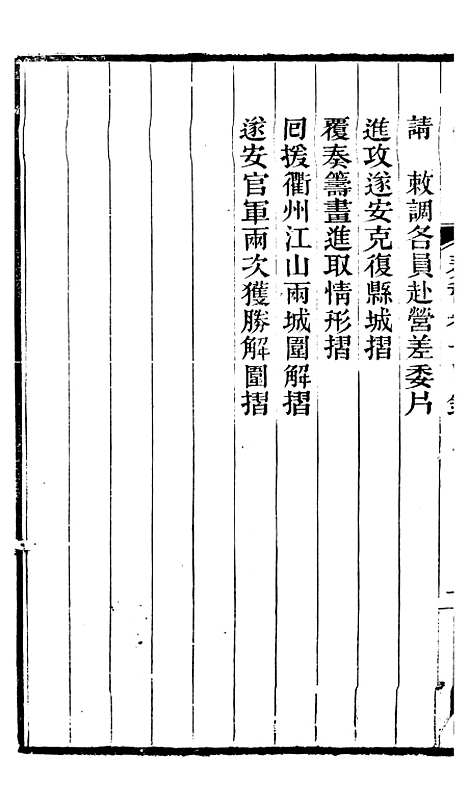 請 敕調各員赴營差委片
進攻遂安克復縣城摺
覆奏籌畫進取情形摺
回援衢州江山兩城圍解摺
遂安官軍兩次獲勝解圍摺